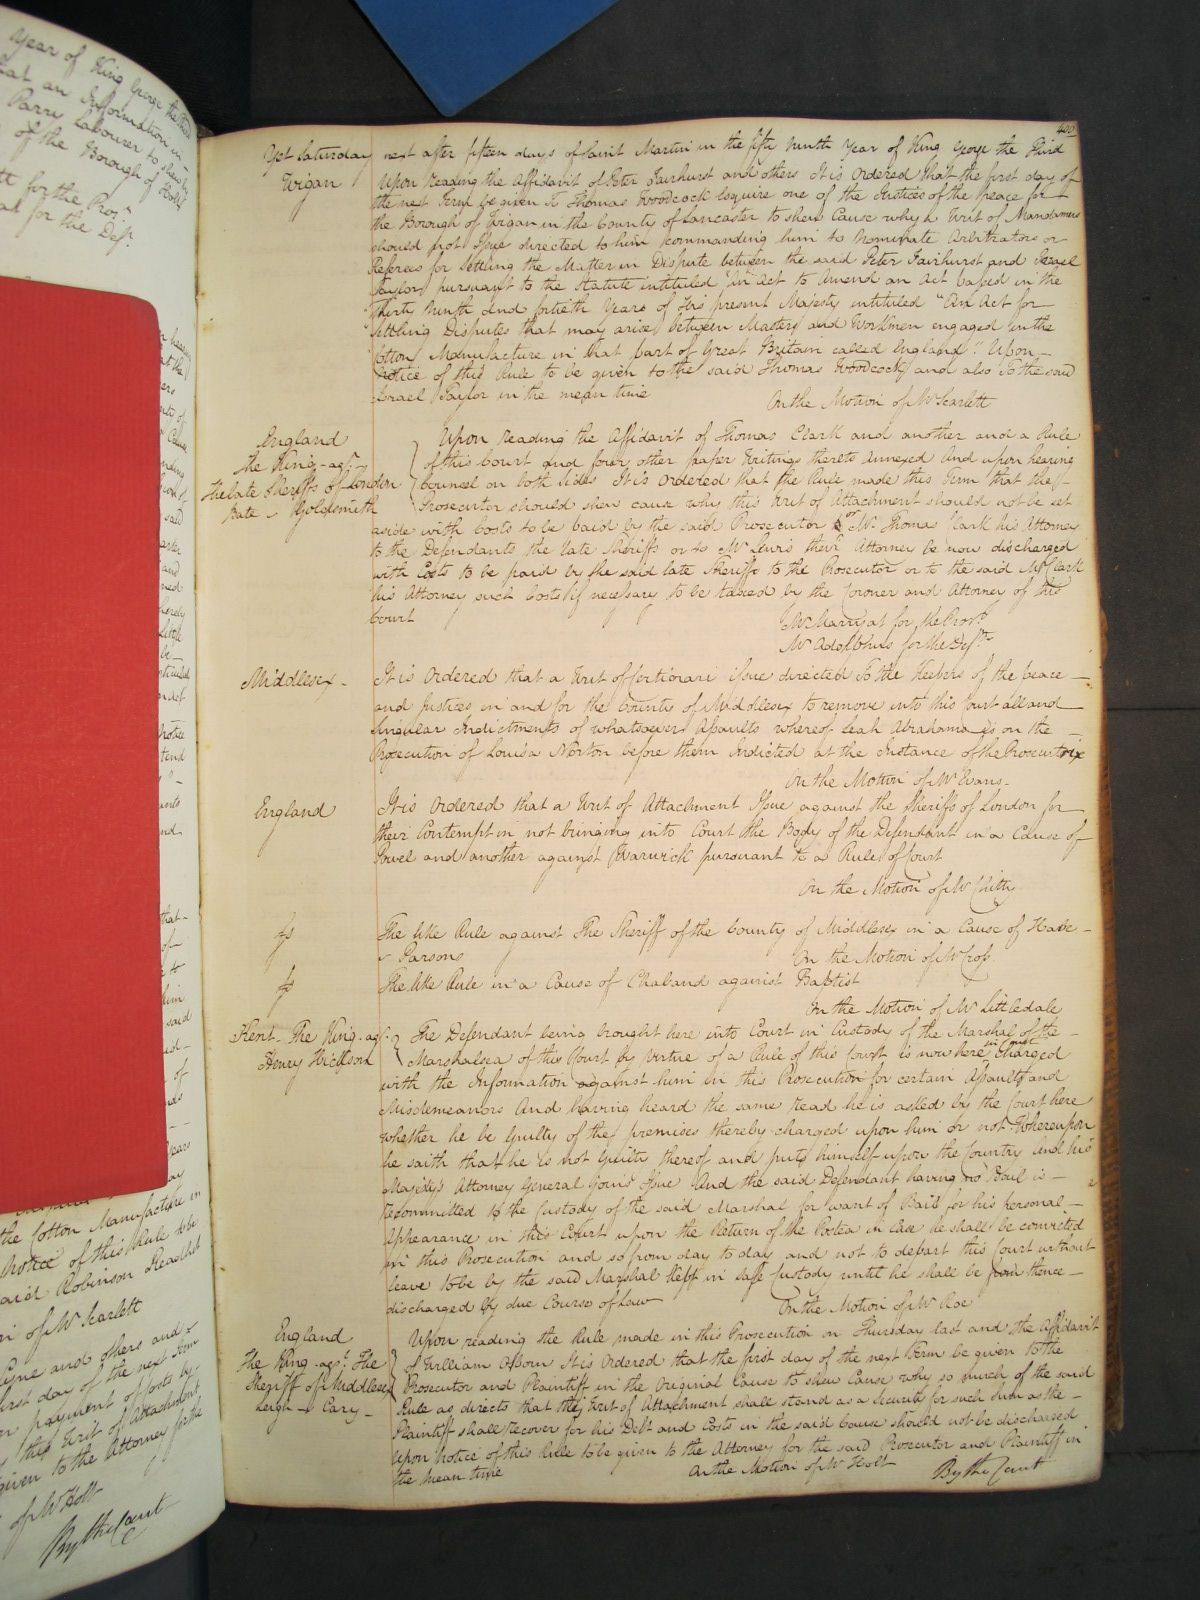 Year of King George the Third
that an Information in
Parry Labourer to shew by
of the Borough of Holt
for the Pros.r
for the Def.
400
Yet Saturday next after fifteen days of Saint Martin in the fifty ninth Year of King George the Third
Wigan
Upon reading the Affidavit of Peter Fairhurst and others It is ordered that the first day of
the next Term be given to Thomas Woodcock Esquire one of the Justices of the peace for
the Borough of Wigan in the County of Lancaster to shew Cause why a Writ of Mandamus
should not Issue directed to him commanding him to nominate Arbitrators or
Referees for settling the Matter in Dispute between the said Peter Fairhurst and Israel
Taylor pursuant to the Statute intituled "An Act to Amend an Act passed in the
Thirty Ninth and fortieth Years of His present Majesty intituled "An Act for
settling Disputes that may arise between Masters and Workmen engaged in the
Cotton Manufacture in that part of Great Britain called England" Upon
notice of this Rule to be given to the said Thomas Woodcock and also To the said
Israel Taylor in the mean time
On the Motion of Mr Scarlett
England
The King - agt
The late Sheriffs of London
Bate v Goldsmith
Upon reading the Affidavit of Thomas Clark and another and a Rule
of this Court and four other paper Writings thereto annexed And upon hearing
Counsel on both sides It is ordered that the Rule made this Term that the
Prosecutor should shew cause why this Writ of Attachment should not be set
aside with Costs to be paid by the said Prosecutor or Mr Thomas Clark his Attorney
to the Defendants the late Sheriffs or to Mr Lewis their Attorney be now discharged
with Costs to be paid by the said late Sheriffs to the Prosecutor or to the said Mr Clark
his Attorney such Costs if necessary to be taxed by the Coroner and Attorney of this
Court
Mr Marryat for the Prosr
Mr Adolphus for the Defts
Middlesex
It is Ordered that a Writ of Certiorari issue directed To the Keepers of the peace
and Justices in and for the County of Middlesex to remove into this Court all and
singular Indictments of whatsoever Assaults whereof Leah Abrahams is on the
Prosecution of Louisa Norton before them Indicted at the Instance of the Prosecutrix
On the Motion of Mr Evans
England
It is Ordered that a Writ of Attachment Issue against the Sheriffs of London for
their Contempt in not bringing into Court the Body of the Defendant in a Cause of
Powel and another against Warwick pursuant to a Rule of Court
On the Motion of Mr Chitty
fs
The like Rule against The Sheriff of the County of Middlesex in a Cause of
v Parsons
On the Motion of Mr Cross
fs
The like Rule in a Cause of Chaband against Baptist
On the Motion of Mr Littledale
Kent - The King - agt
Henry Hickson
The Defendant being brought here into Court in Custody of the Marshal of the
Marshalsea of this Court by virtue of a Rule of this Court is now here in Court charged
with the Information against him in this Prosecution for certain Assaults and
Misdemeanors And having heard the same read he is asked by the Court here
whether he be Guilty of the premises thereby charged upon him or not Whereupon
he saith that he is not Guilty thereof and puts himself upon the Country And his
Majestys Attorney General joins Issue And the said Defendant having no Bail is
recommitted to the Custody of the said Marshal for want of Bail for his personal
Appearance in this Court upon the Return of the Postea in Case he shall be convicted
in this Prosecution and so from day to day and not to depart this Court without
leave to be by the said Marshal Kept in safe Custody until he shall be from thence
discharged by due Course of Law
On the Motion of Mr Roe
England
The King - agt The
Sheriff of Middlesex
Leigh v Cary
Upon reading the Rule made in this Prosecution on Thursday last and the Affidavit
of William Osborn It is Ordered that the first day of the next Term be given to the
Prosecutor and Plaintiff in the Original Cause to shew Cause why so much of the said
Rule as directs that the Writ of Attachment shall stand as a Security for such Sum as the
Plaintiff shall recover for his Debt and Costs in the said Cause should not be discharged
Upon Notice of this Rule to be given to the Attorney for the said Prosecutor and Plaintiff in
the mean time
On the Motion of Mr Holt
By the Court
the Cotton Manufacture in
Notice of this Rule to be
said Robinson
of Mr Scarlett
and others and
first day of the next Term
payment of Costs by
this Writ of Attachment
given to the Attorney for the
of Mr Holt
By the Court